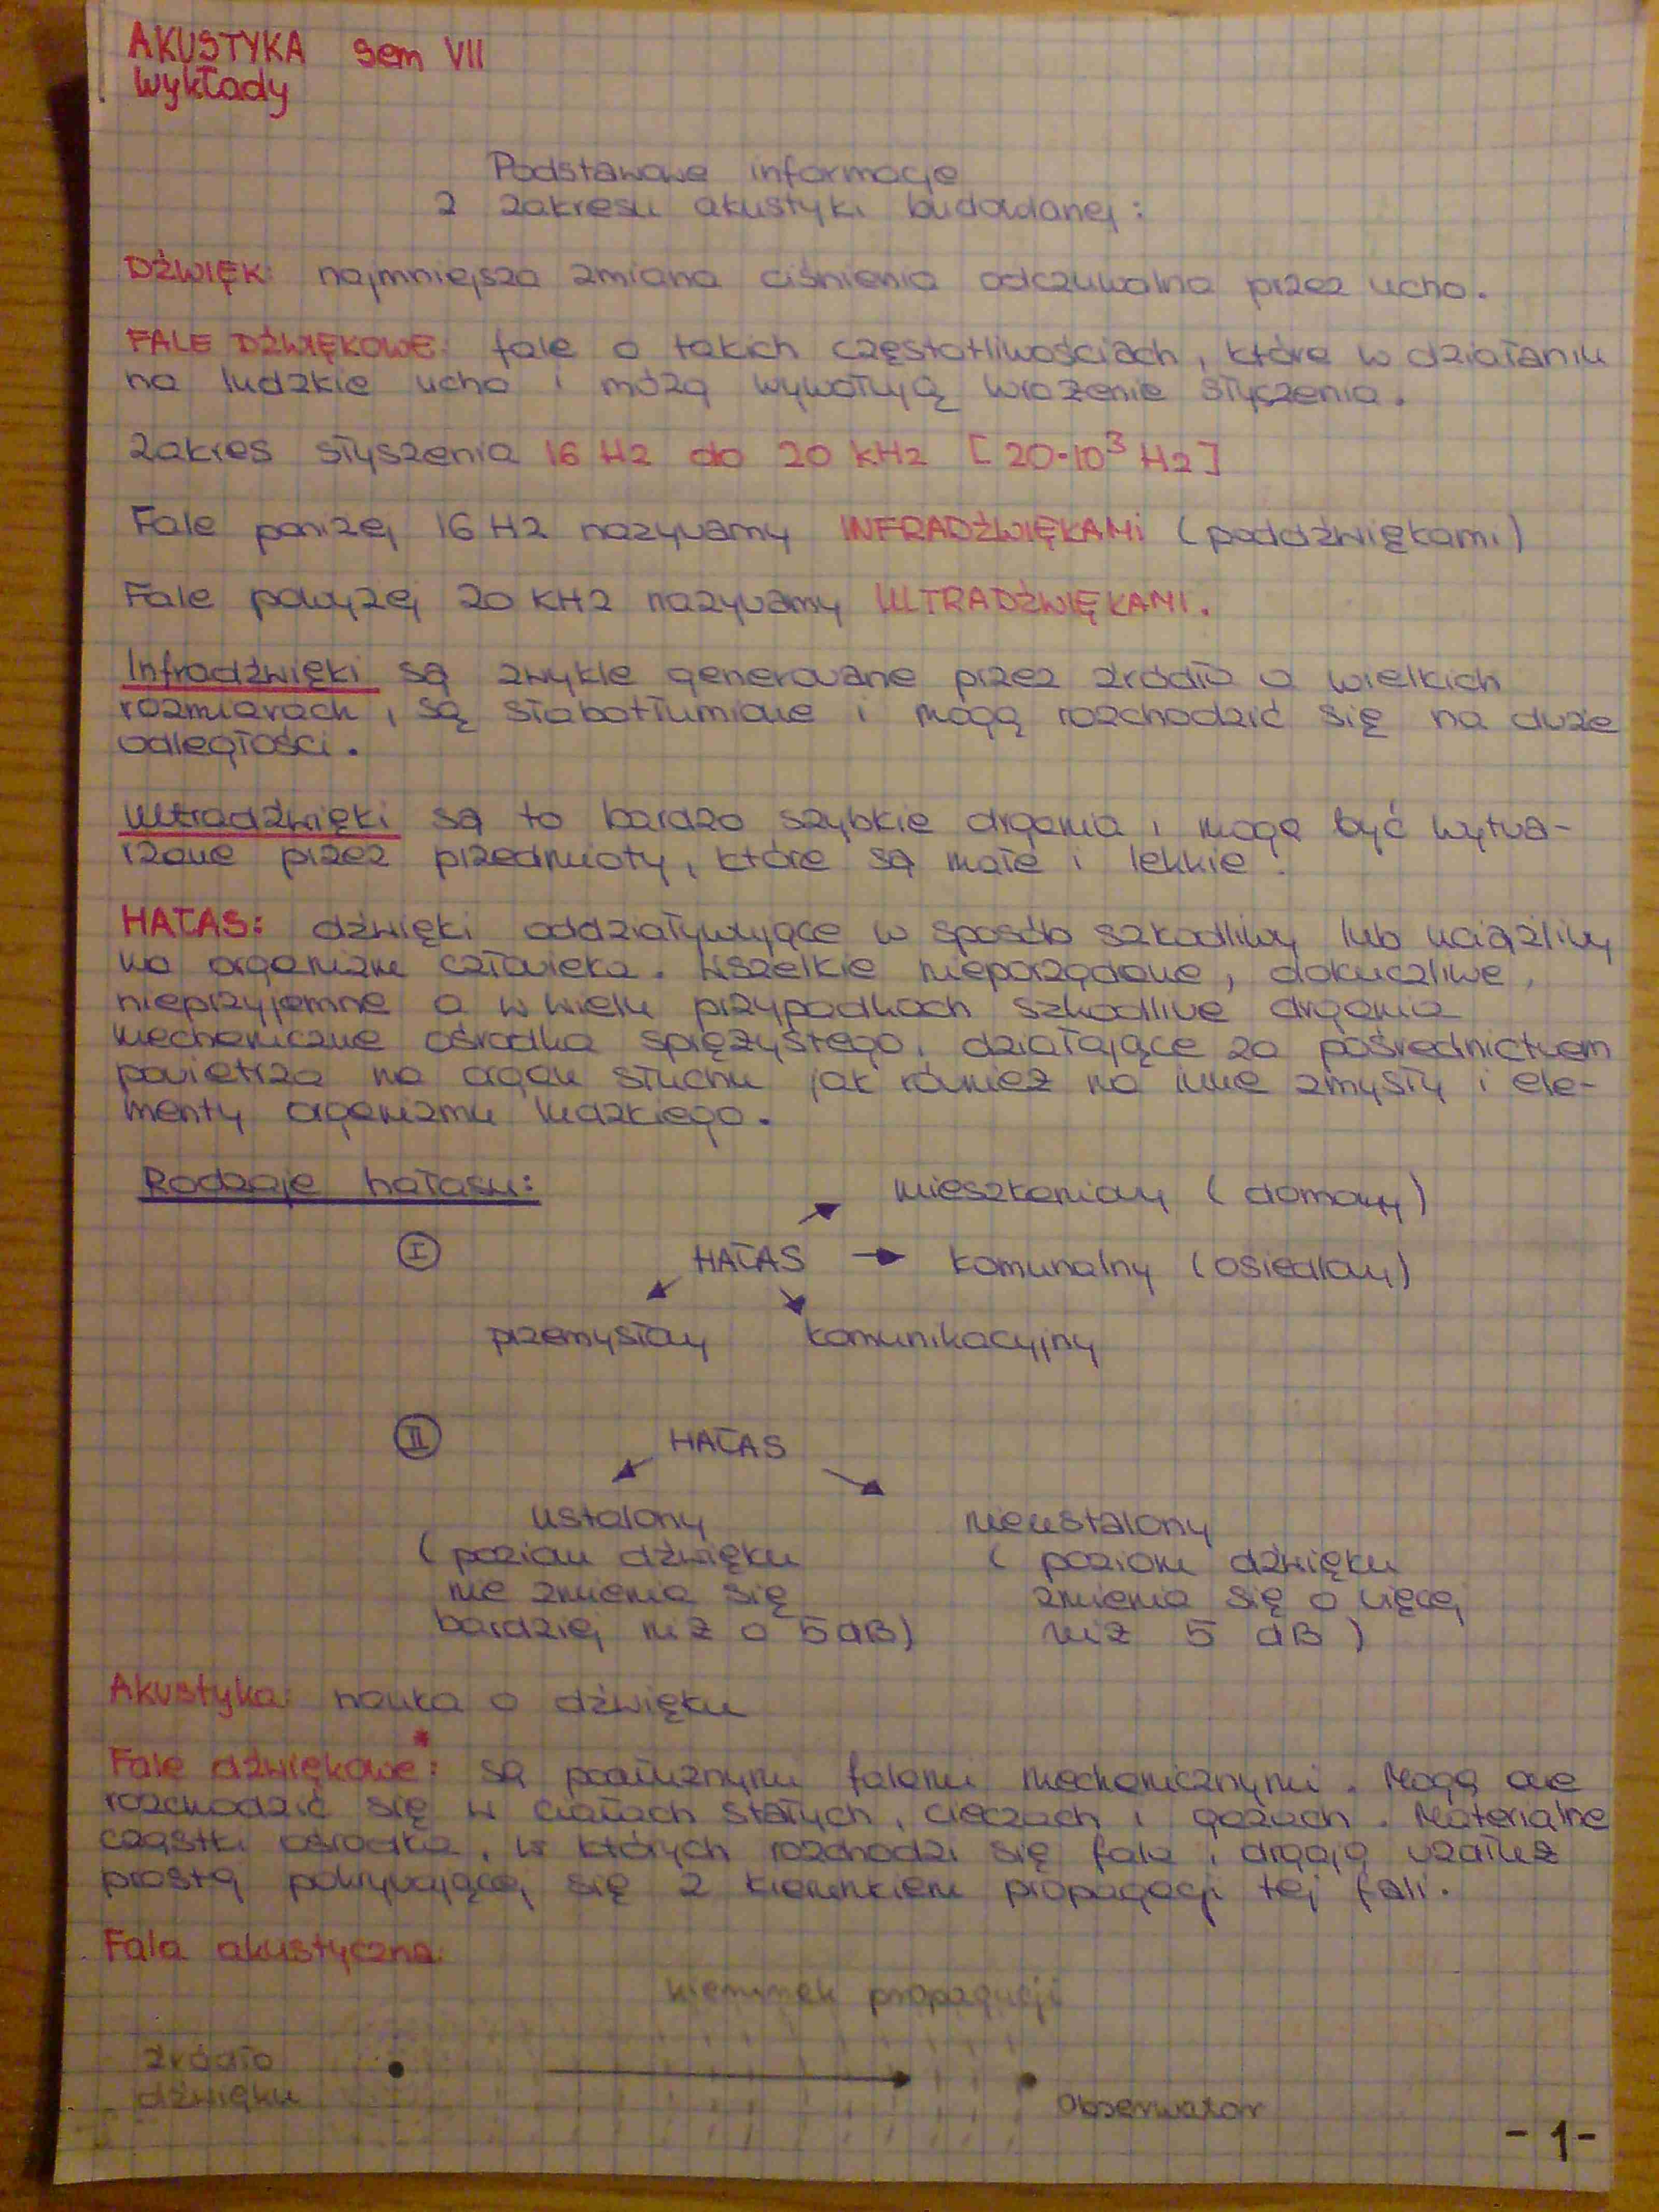 AKUSTYKA sem VII
Wykłady
Podstawowe informacje
z zakresu akustyki budowlanej:
DŹWIĘK: najmniejsza zmiana ciśnienia odczuwalna przez ucho.
FALE DŹWIĘKOWE: fale o takich częstotliwościach, które w działaniu
na ludzkie ucho i mózg wywołują wrażenie słyszenia.
Zakres słyszenia 16 Hz do 20 kHz [20·10³ Hz]
Fale poniżej 16 Hz nazywamy INFRADŹWIĘKAMI (poddźwiękami)
Fale powyżej 20 KHz nazywamy ULTRADŹWIĘKAMI.
Infradźwięki są zwykle generowane przez źródła o wielkich
rozmiarach, są słabotłumione i mogą rozchodzić się na duże
odległości.
Ultradźwięki są to bardzo szybkie drgania i mogą być wytwa-
rzane przez przedmioty, które są małe i lekkie.
HAŁAS: dźwięki oddziaływujące w sposób szkodliwy lub uciążliwy
na organizm człowieka. Wszelkie niepożądane, dokuczliwe,
nieprzyjemne a w wielu przypadkach szkodliwe drgania
mechaniczne ośrodka sprężystego, działające za pośrednictwem
powietrza na organ słuchu jak również na inne zmysły i ele-
menty organizmu ludzkiego.
Rodzaje hałasu:
mieszkaniowy (domowy)
I HAŁAS komunalny (osiedlowy)
przemysłowy komunikacyjny
II HAŁAS
ustalony nieustalony
(poziom dźwięku (poziom dźwięku
nie zmienia się zmienia się o więcej
bardziej niż o 5dB) niż 5 dB)
Akustyka: nauka o dźwięku
Fale dźwiękowe*: są podłużnymi falami mechanicznymi. Mogą one
rozchodzić się w ciałach stałych, cieczach i gazach. Materialne
cząstki ośrodka, w których rozchodzi się fala, drgają wzdłuż
prostej pokrywającej się z kierunkiem propagacji tej fali.
Fala akustyczna:
kierunek propagacji
źródło
dźwięku
Obserwator
-1-